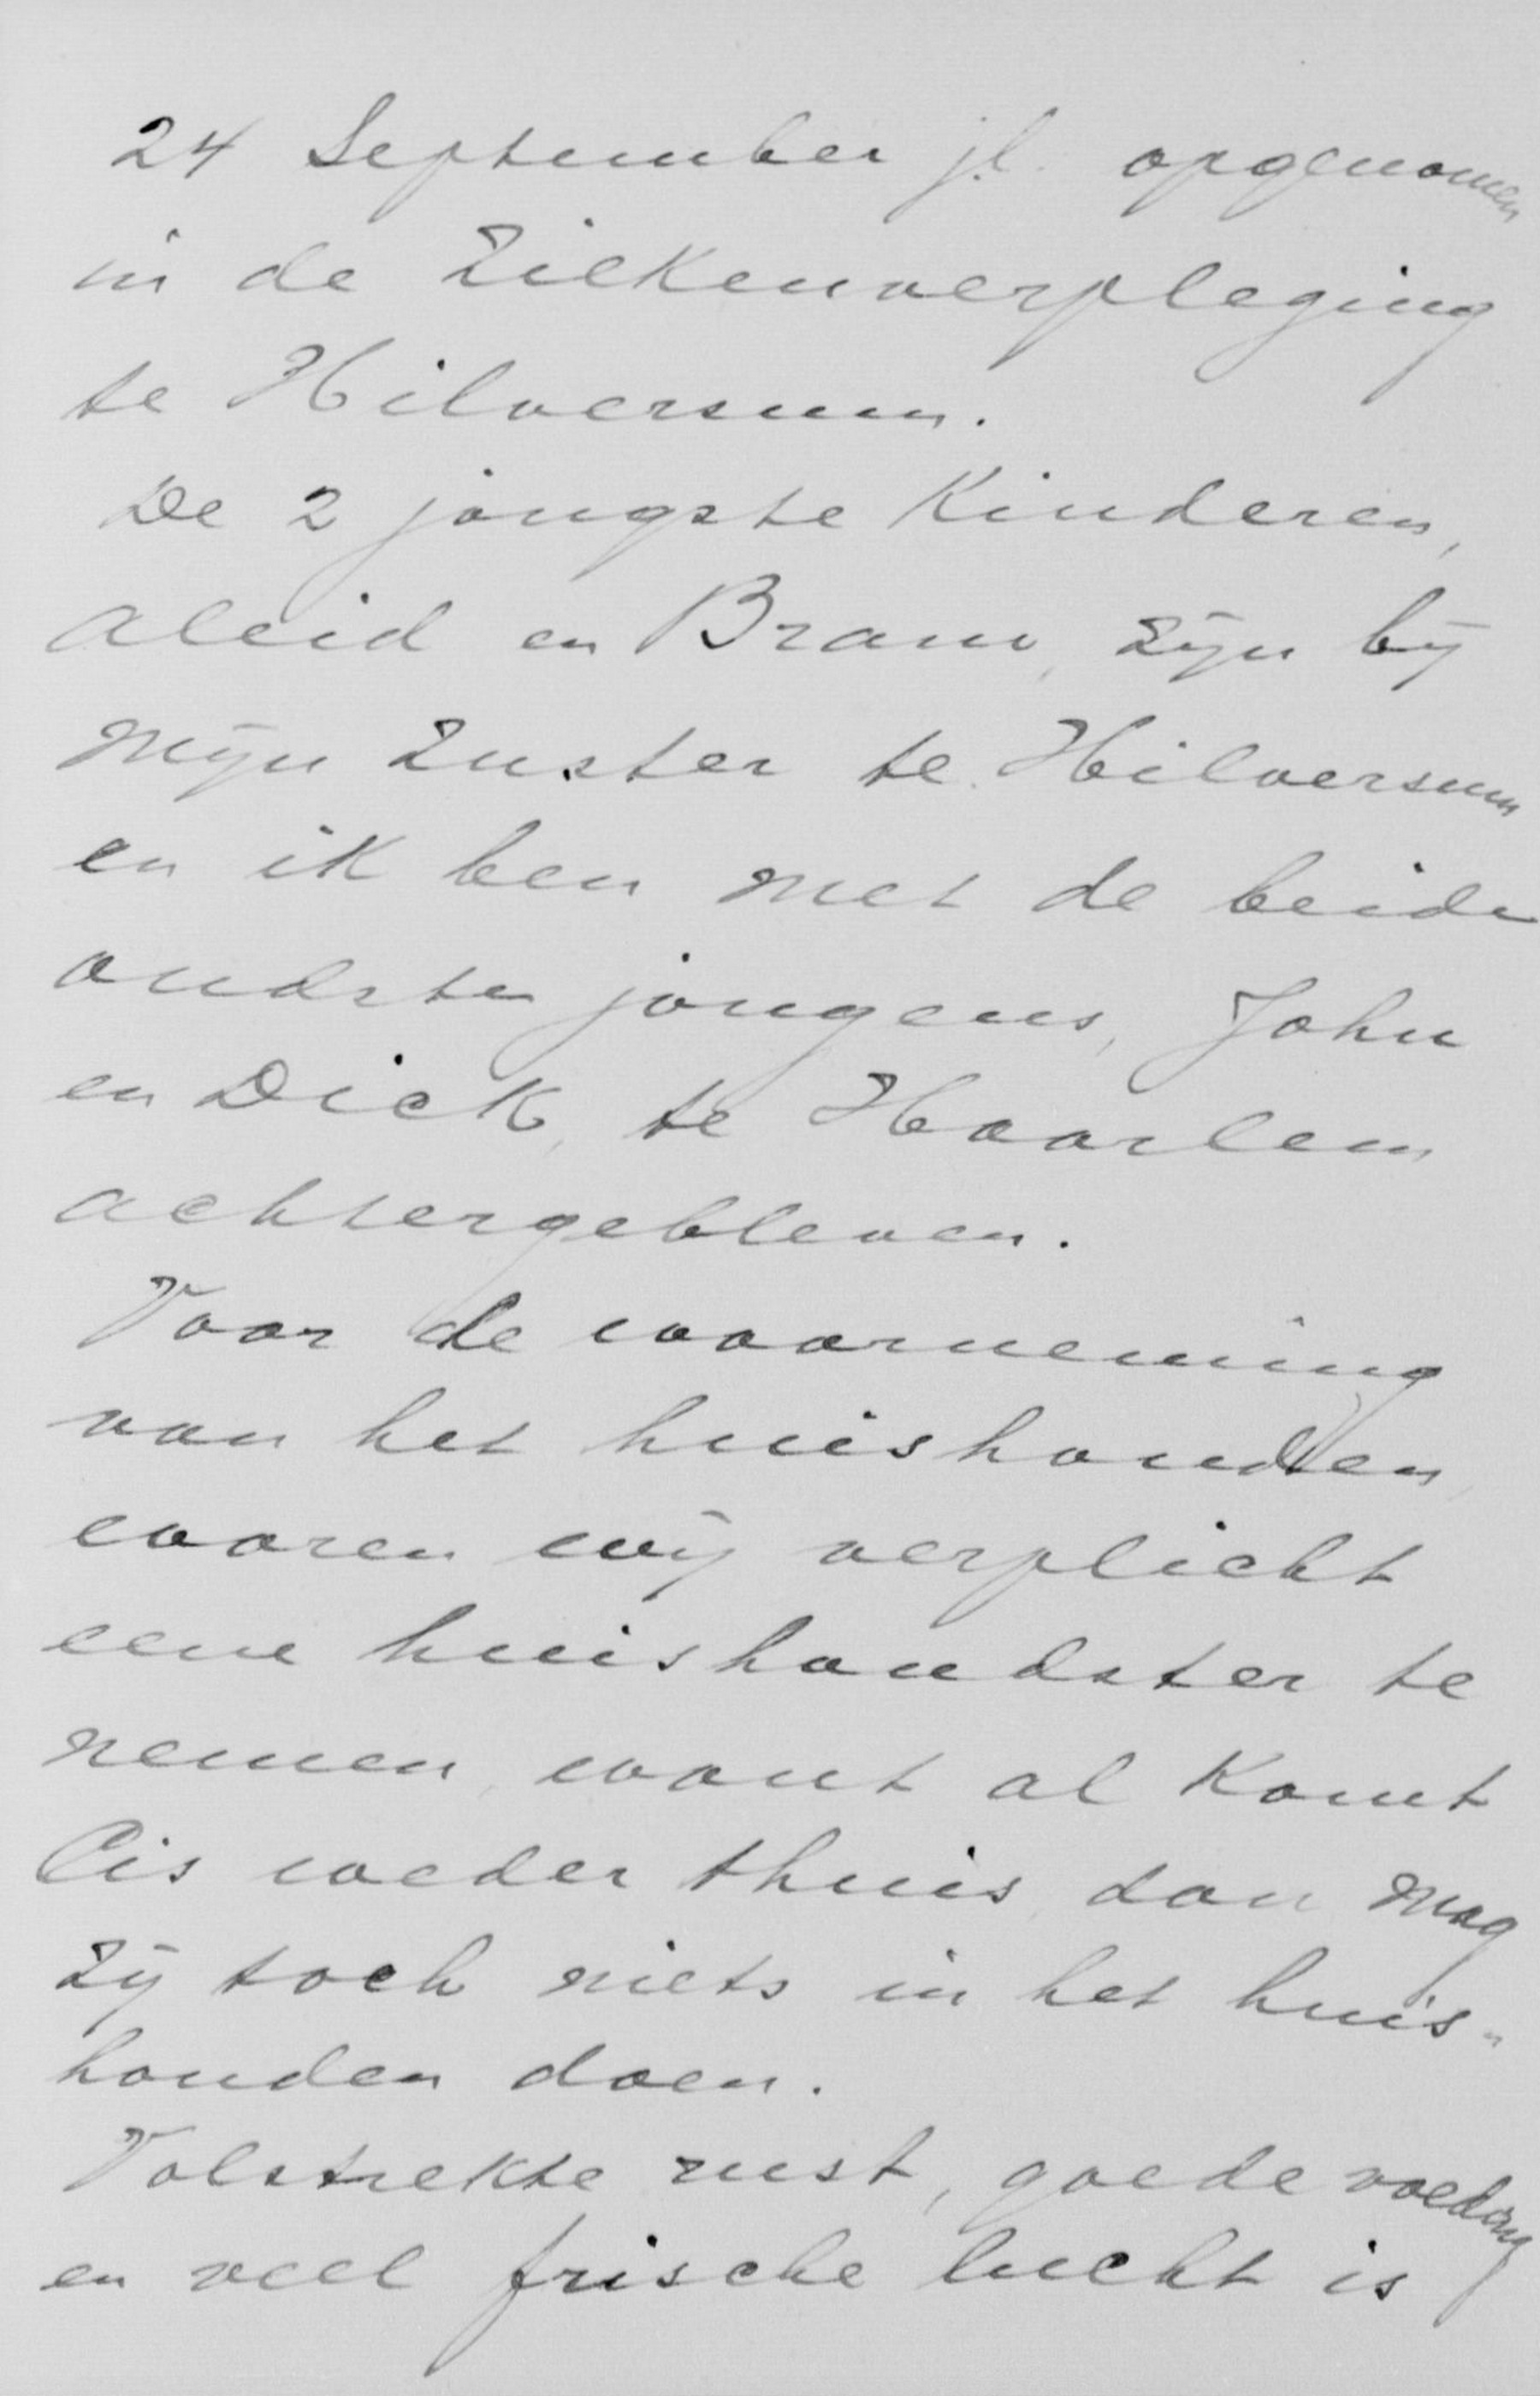 24 September j.l. opgenomen
in de Ziekenverpleging
te Hilversum.
De 2 jongste Kinderen,
Aleid en Bram, zijn bij
mijn zuster te Hilversum
en ik ben met de beide
oudste jongens, John
en Dick, te Haarlem
achtergebleven.
Voor de waarneming
van het huishouden,
waren wij verplicht
eene huishoudster te
nemen, want al komt
Cis weder thuis, dan mag
zij toch niets in het huis-
houden doen.
Volstrekte rust, goede voeding
en veel frische lucht is